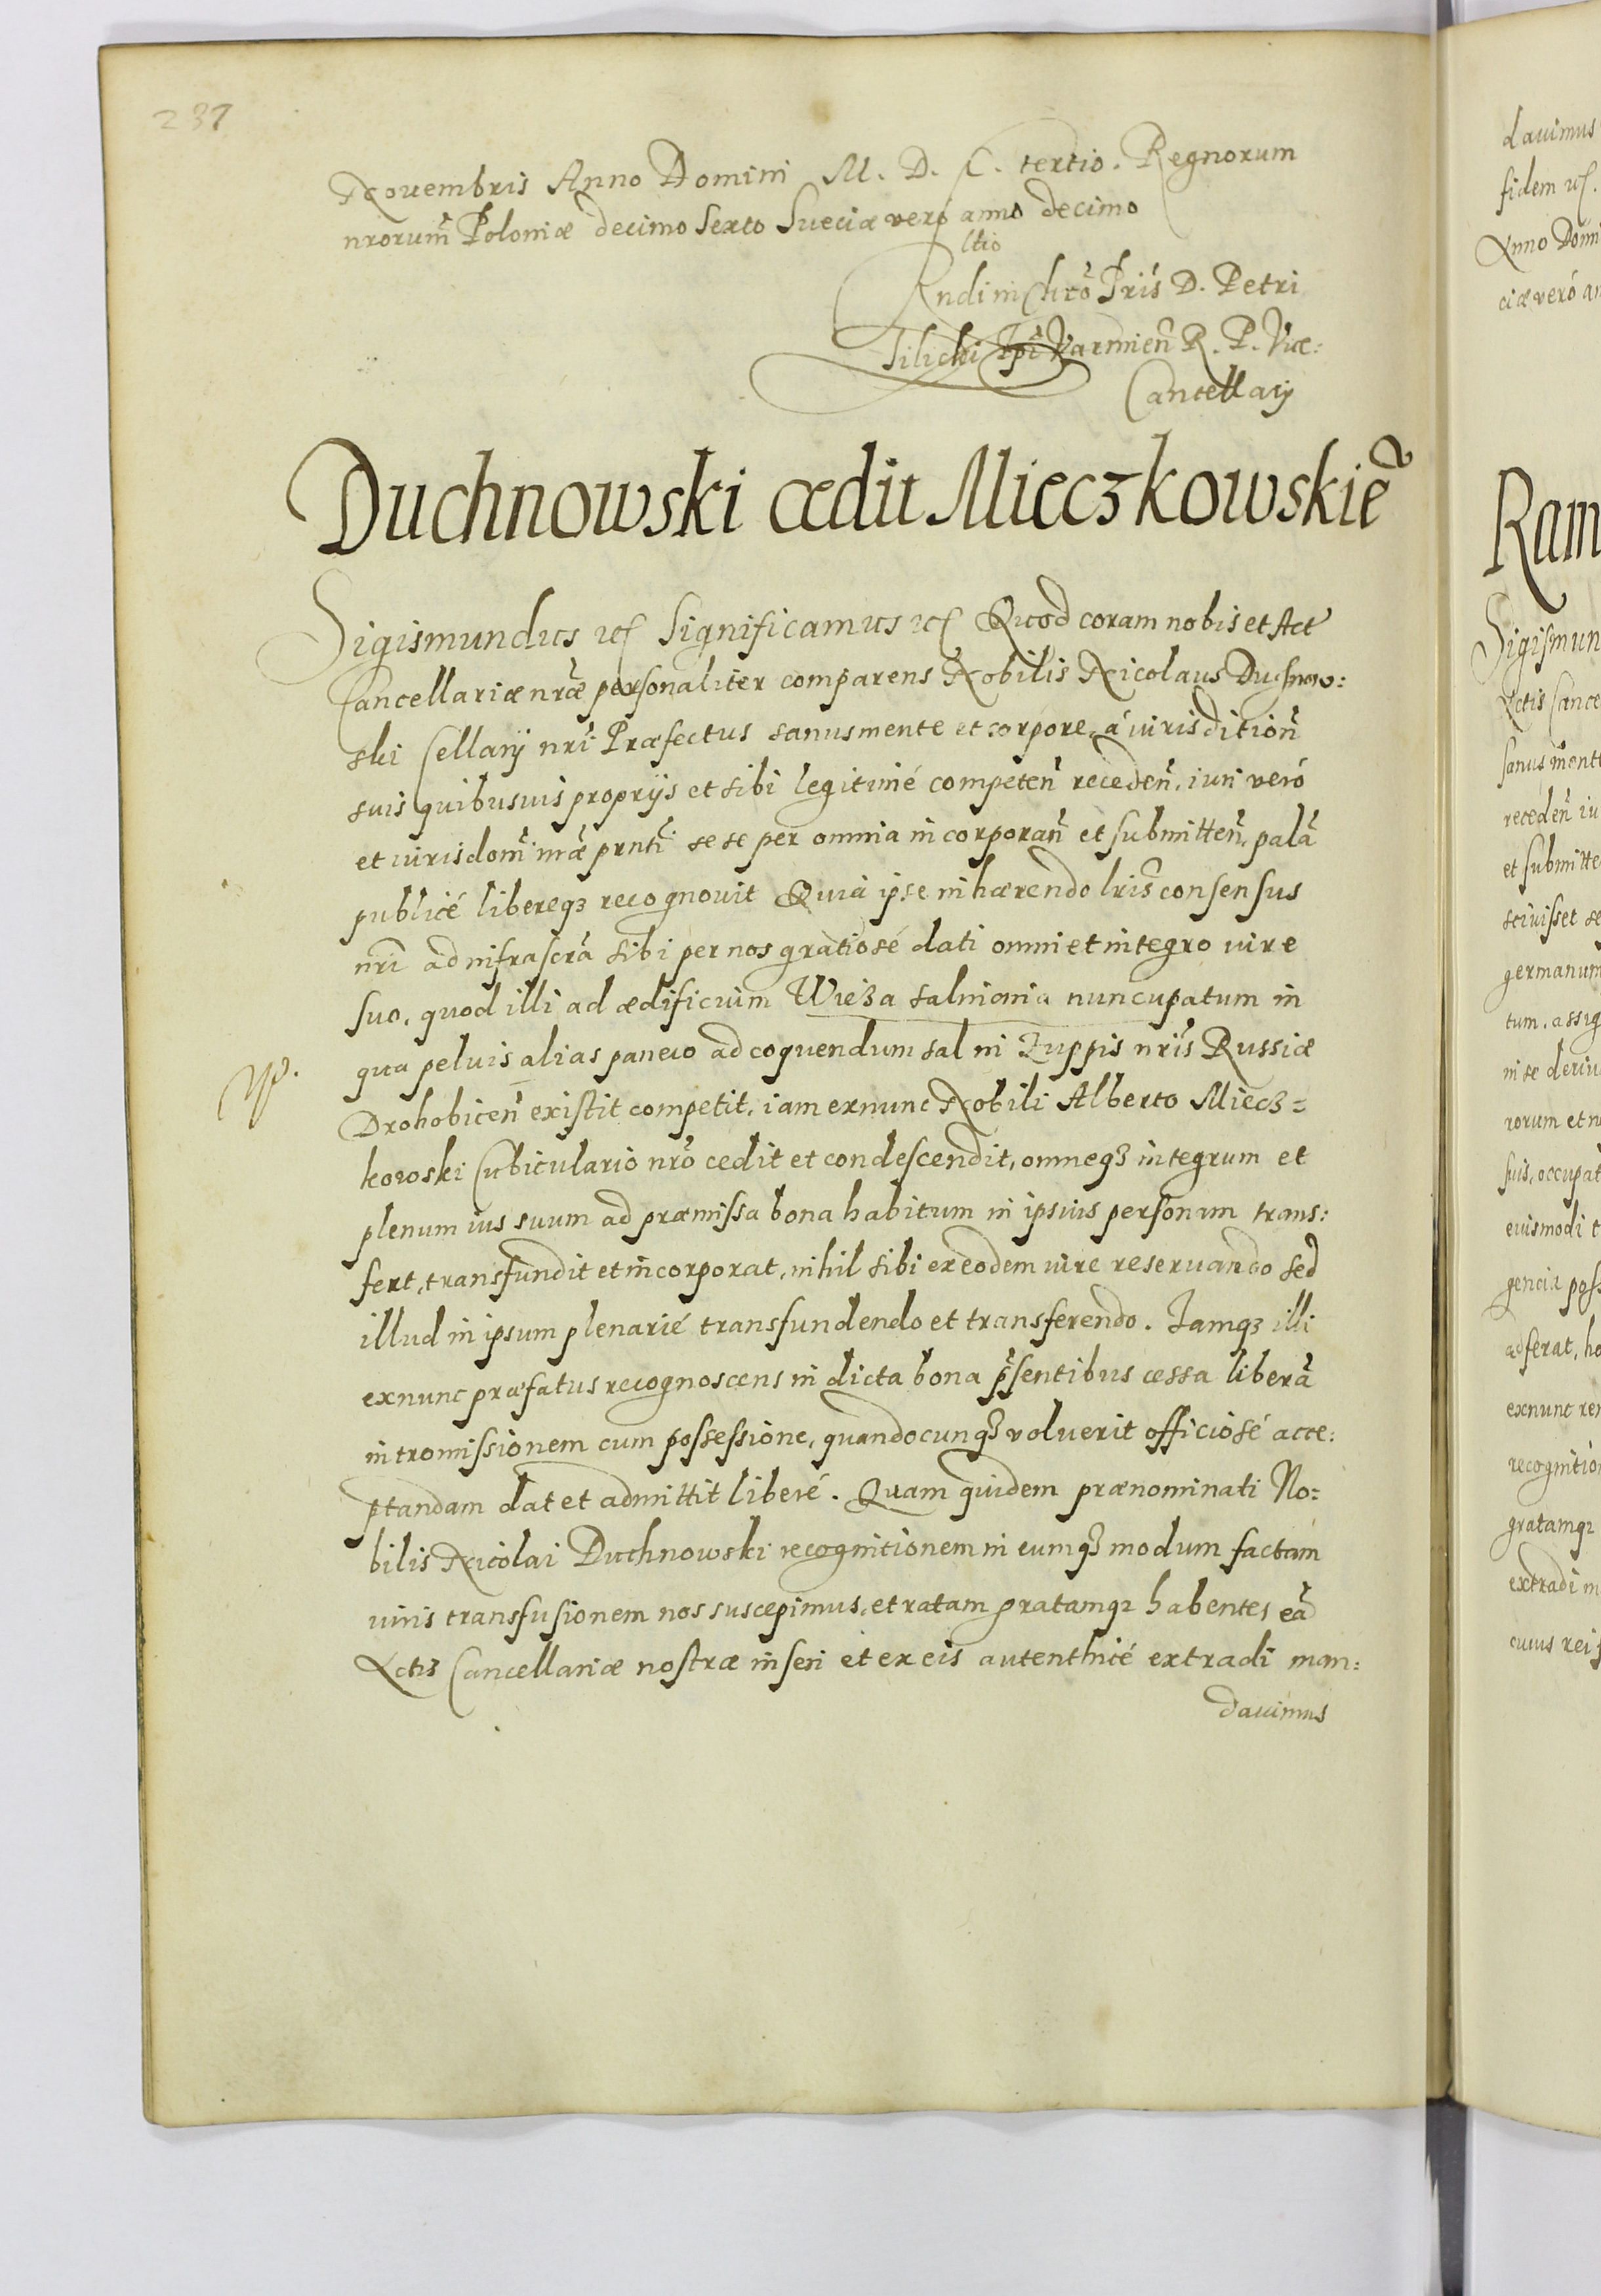 237
Nouembris Anno Domini M. D. C. tertio. Regnorum
nrorum̃ Poloniæ decimo sexto Sueciæ vero anno decimo
Rndi in Chrõ Pris̃ D. Petri
Tilicki Ep̃i Varmień R. P. Vice:
Cancellarij
Duchnowski cedit Mieczkowskiẽ
Sigismundus etc Significamus etc Quod coram nobis et Act̃
Cancellariæ nrãe personaliter comparens Nobilis Nicolaus Duchnow:
ski Cellarij nrĩ Præfectus sanus mente et corpore, á iurisdition̄
suis quibusuis proprijs et sibi legitimé competen̄ receden̄, iuri veró
et iurisdom̃ præ prnti se se per omnia incorporan̄ et submitten̄, palã
publicé libereqꝫ recognouit Quia ipse inhærendo lris̃ consensus
nrĩ ad infrascrã sibi per nos gratiosé dati omni et integro iure
suo, quod illi ad ædificium Wieża salniania nuncupatum in
qua peluis alias panew ad coquendum sal in Zuppis nris̃ Russiæ
Drohobicen̄ existit competit, iam exnunc Nobili Alberto Miecz=
kowski Cubiculario nrõ cedit et condescendit, omneqꝫ integrum et
plenum ius suum ad præmissa bona habitum in ipsius personam trans:
fert, transfundit et incorporat, nihil sibi ex eodem iure reseruando sed
illud in ipsum plenarié transfundendo et transferendo. Iamqꝫ illi
exnunc præfatus recognoscens in dicta bona pr̃sentibus cessa liberã
intromissionem cum possessione, quandocunqꝫ voluerit officiosé acce:
ptandam dat et admittit liberé. Quam quidem prænominati No:
bilis Nicolai Duchnowski recognitionem in eumqꝫ modum factam
iuris transfusionem nos suscepimus, et ratam gratamqꝫ habentes eã
Actis Cancellariæ nostræ inseri et ex eis autenthicé extradi man:
dauimus
dauimus
fidem etc.
Anno Domi
ciæ veró an
Ram
Sigismun
Actis Cance
sanus mente
receden̄ iu
et submitte
sciuisset se
germanum
tum, assig
in se deriu
rorum et n
suis, occupat
eiusmodi t
gencia poss
adferat, ho
exnunc re
recognitio
gratamqꝫ
extradi m
cuius rei f